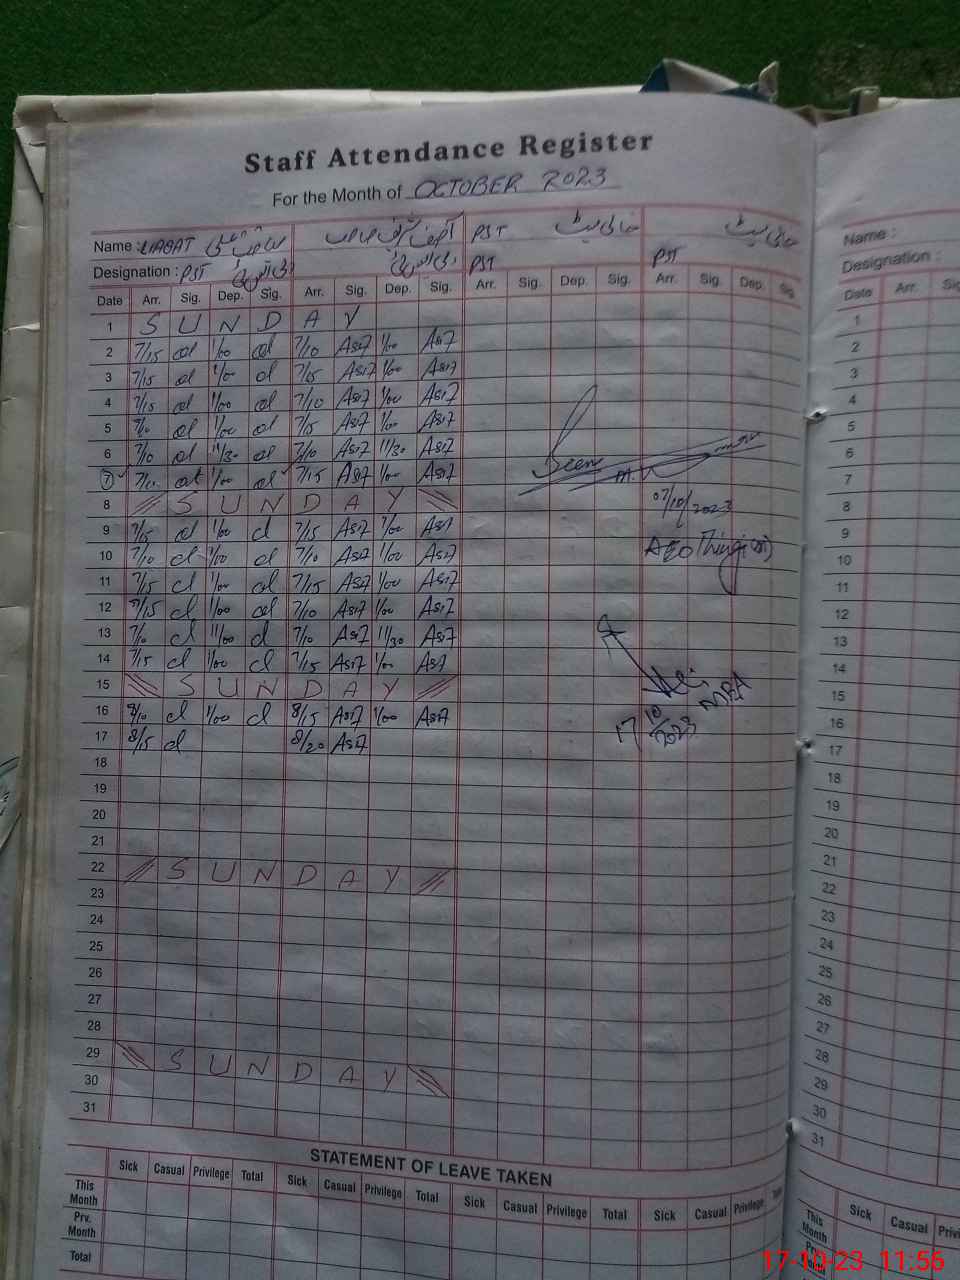 Staff Attendance Register
For the Month of OCTOBER 2023
Name : LIAQAT PST خالی سیٹ خالی سیٹ
Designation : PST PST PST
Date Arr. Sig. Dep. Sig. Arr. Sig. Dep. Sig. Arr. Sig. Dep. Sig. Arr. Sig. Dep. Sig.
1 S U N D A Y
2 7/15 1/00 7/10 Asif 1/00 Asif
3 7/15 1/00 7/15 Asif 1/00 Asif
4 7/15 1/00 7/10 Asif 1/00 Asif
5 7/10 1/00 7/15 Asif 1/00 Asif
6 7/10 11/30 7/10 Asif 11/30 Asif
7 7/10 1/00 7/15 Asif 1/00 Asif
Seen
8 S U N D A Y
07/10/2023
9 7/15 1/00 7/15 Asif 1/00 Asif
10 7/10 1/00 7/10 Asif 1/00 Asif
AEO
11 7/15 1/00 7/15 Asif 1/00 Asif
12 7/15 1/00 7/10 Asif 1/00 Asif
13 7/10 11/00 7/10 Asif 11/30 Asif
14 7/15 1/00 7/15 Asif 1/00 Asif
15 S U N D A Y
MEA
16 8/10 1/00 8/15 Asif 1/00 Asif
17/10/2023
17 8/15 8/20 Asif
18
19
20
21
22 S U N D A Y
23
24
25
26
27
28
29 S U N D A Y
30
31
STATEMENT OF LEAVE TAKEN
Sick Casual Privilege Total Sick Casual Privilege Total Sick Casual Privilege Total Sick Casual Privilege
This Month
Prv. Month
Total
Name :
Designation :
Date Arr.
1
2
3
4
5
6
7
8
9
10
11
12
13
14
15
16
17
18
19
20
21
22
23
24
25
26
27
28
29
30
31
Sick Casual
This Month
Prv.
17-10-23 11:56